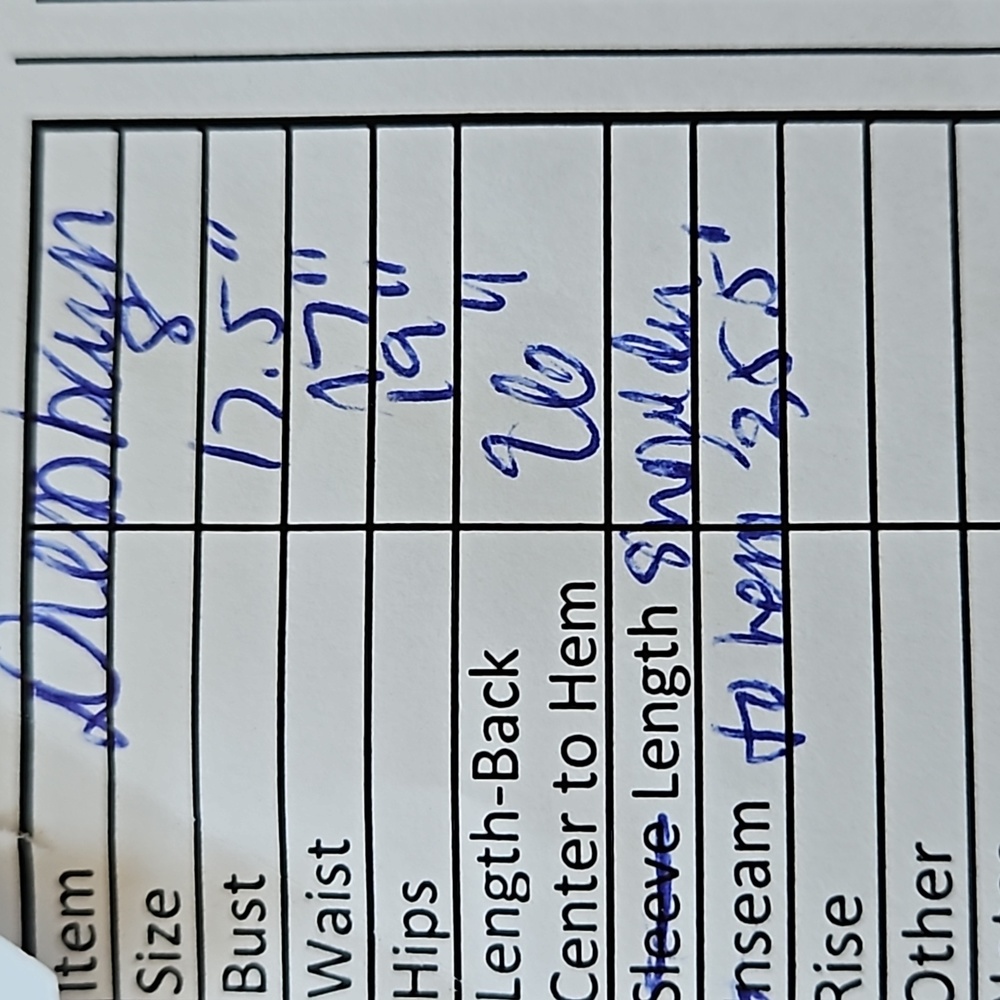 Item
Size 8
Bust 17.5"
Waist 17"
Hips 19"
Length-Back
Center to Hem 26"
Sleeve Length Shoulder
nseam to hem 25.5"
Rise
Other